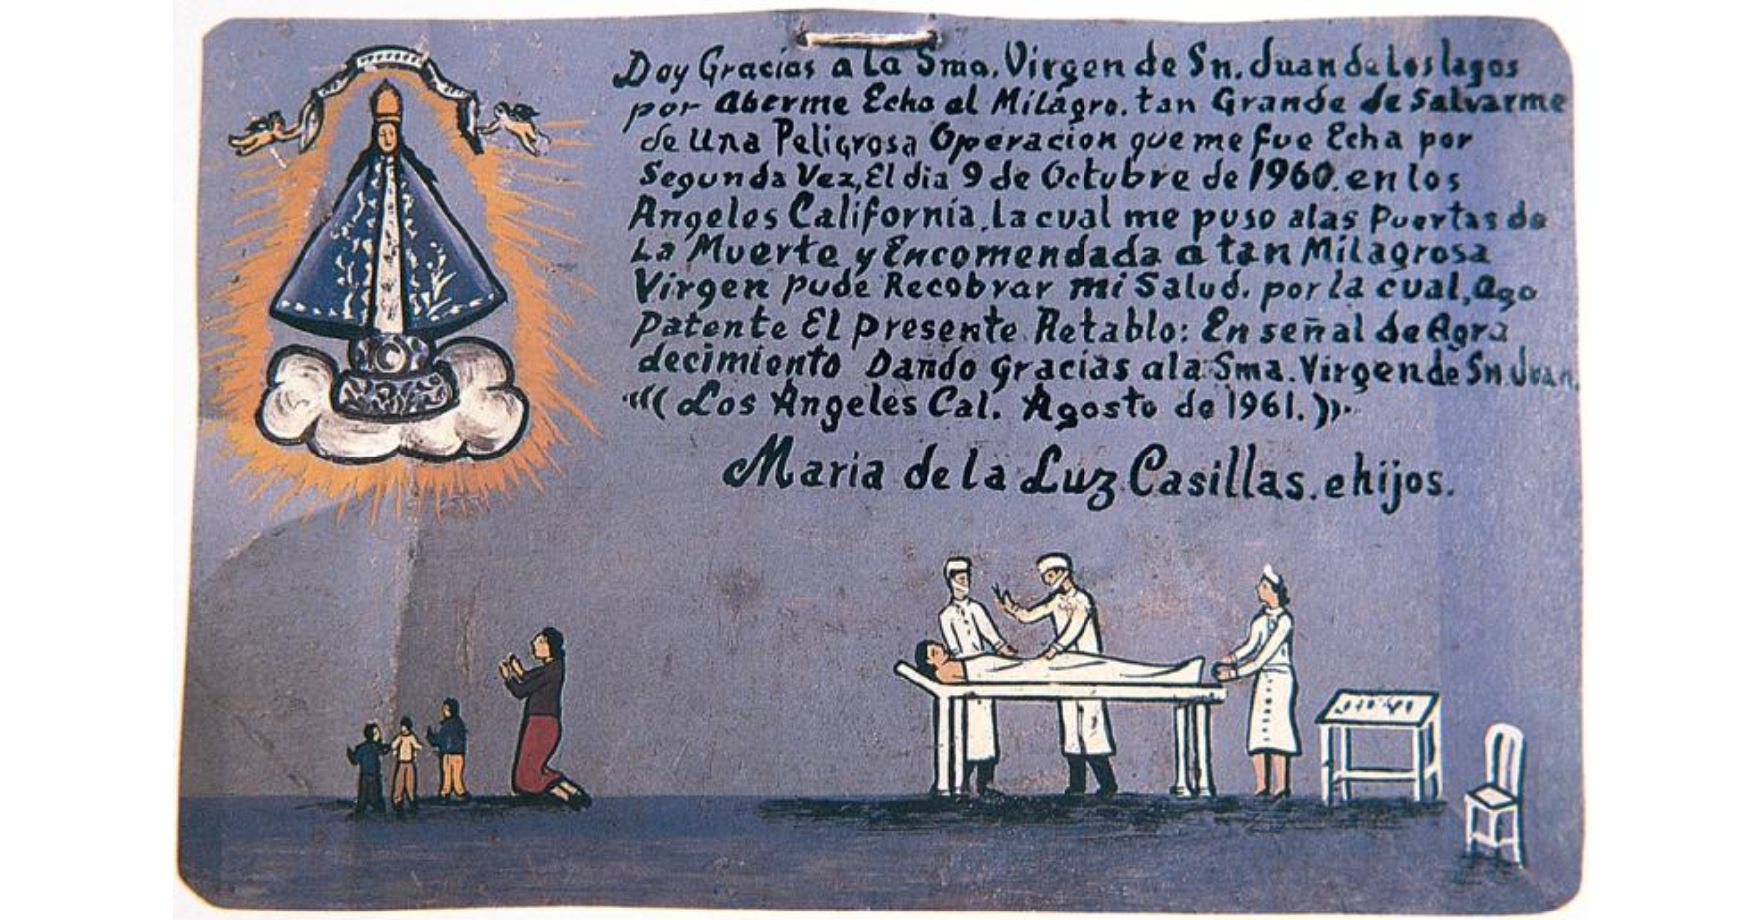 Doy Gracias a la Sma. Virgen de Sn. Juan de Los lagos
por Aberme Echo el Milagro. tan Grande de Salvarme
de Una Peligrosa Operacion que me fue Echa por
Segunda Vez, El dia 9 de Octubre de 1960. en los
Angeles California. La cual me puso alas Puertas de
La Muerte y Encomendada a tan Milagrosa
Virgen pude Recobrar mi Salud. por la cual, ago
Patente El presente Retablo: En señal de Agra
decimiento Dando gracias ala Sma. Virgen de Sn. Juan.
(( Los Angeles Cal. Agosto de 1961. ))
Maria de la Luz Casillas. e hijos.